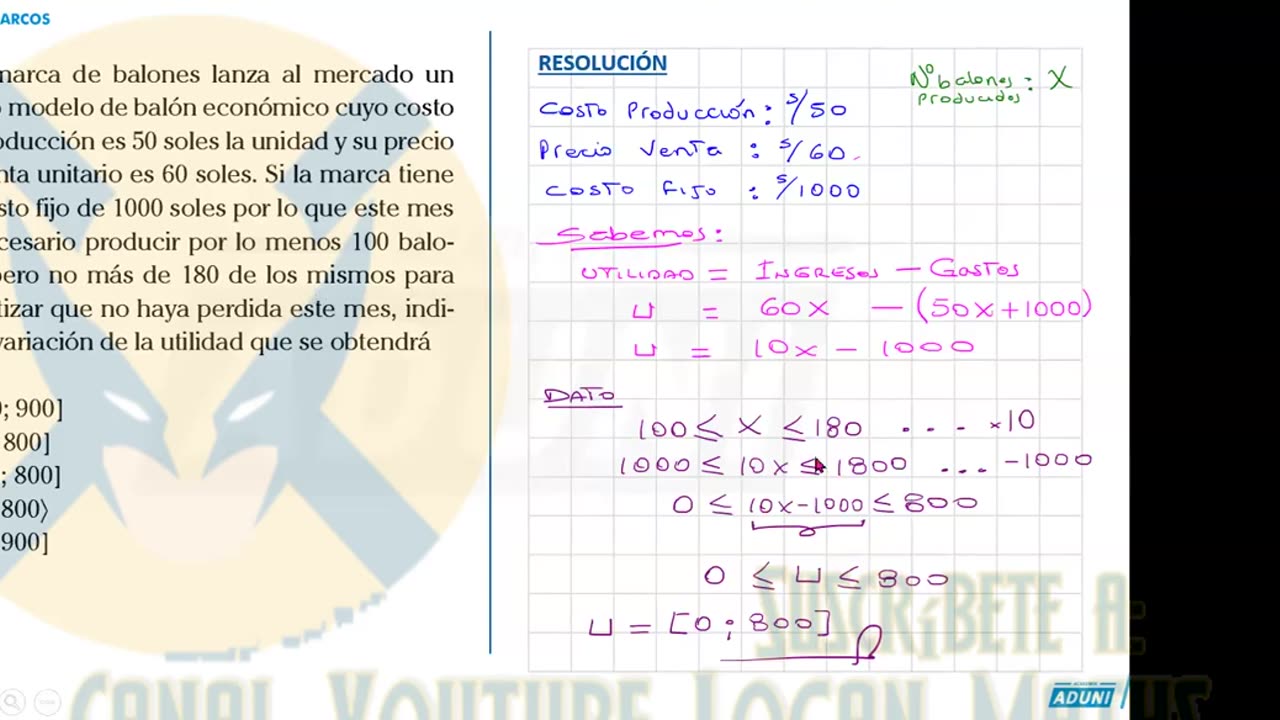 ARCOS
marca de balones lanza al mercado un
modelo de balón económico cuyo costo
oducción es 50 soles la unidad y su precio
nta unitario es 60 soles. Si la marca tiene
sto fijo de 1000 soles por lo que este mes
cesario producir por lo menos 100 balo-
pero no más de 180 de los mismos para
tizar que no haya perdida este mes, indi-
variación de la utilidad que se obtendrá
; 900]
800]
; 800]
800⟩
900]
RESOLUCIÓN
Nº balones : X
Producidos
Costo Producción : S/50
Precio Venta : S/60
Costo Fijo : S/1000
Sabemos:
UTILIDAD = INGRESOS - Gastos
U = 60X - (50X+1000)
U = 10X - 1000
DATO
100 ≤ X ≤ 180 ... ×10
1000 ≤ 10X ≤ 1800 ... -1000
0 ≤ 10X-1000 ≤ 800
0 ≤ U ≤ 800
U = [0 ; 800]
SUSCRÍBETE A:
CANAL YOUTUBE LOGAN
ACADEMIA
ADUNI